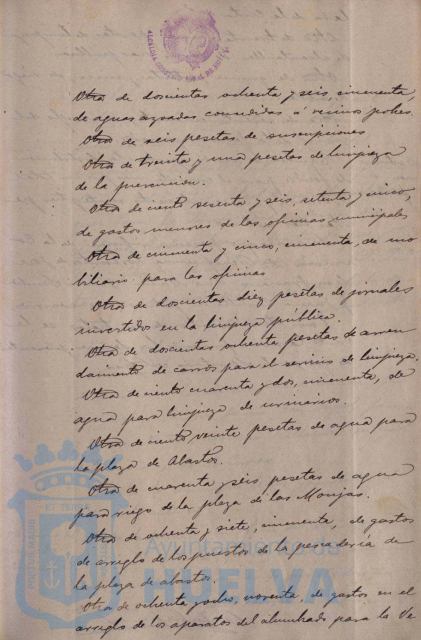 Otra de doscientas ochenta y seis, cincuenta,
de aguas agradas concedidas á vecinos pobres.
Otra de seis pesetas de suscripciones
Otra de treinta y una pesetas de limpieza
de la prevencion.
Otra de ciento sesenta y seis, setenta y cinco,
de gastos menores de las oficinas municipales
Otra de cincuenta y cinco, cincuenta, de mo
biliario para las oficinas
Otra de doscientas diez pesetas de jornales
invertidos en la limpieza pública.
Otra de doscientas ochenta pesetas de arren
damiento de carros para el servicio de limpieza.
Otra de ciento cuarenta y dos, cincuenta, de
agua para limpieza de urinarios.
Otra de ciento veinte pesetas de agua para
la plaza de Abastos.
Otra de cuarenta y seis pesetas de agua
para riego de la plaza de las Monjas.
Otra de ochenta y siete, cincuenta, de gastos
de arreglo de los puestos de la pescadería de
la plaza de abastos.
Otra de ochenta y ocho, noventa, de gastos en el
arreglo de los aparatos del alumbrado para la Ve
Ayuntamiento de
HUELVA